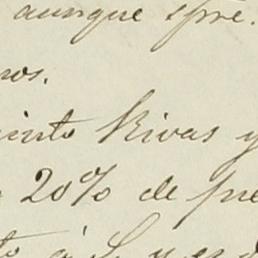 aunque spre.
nos.
into Rivas y
20% de pre
to á S. y es d